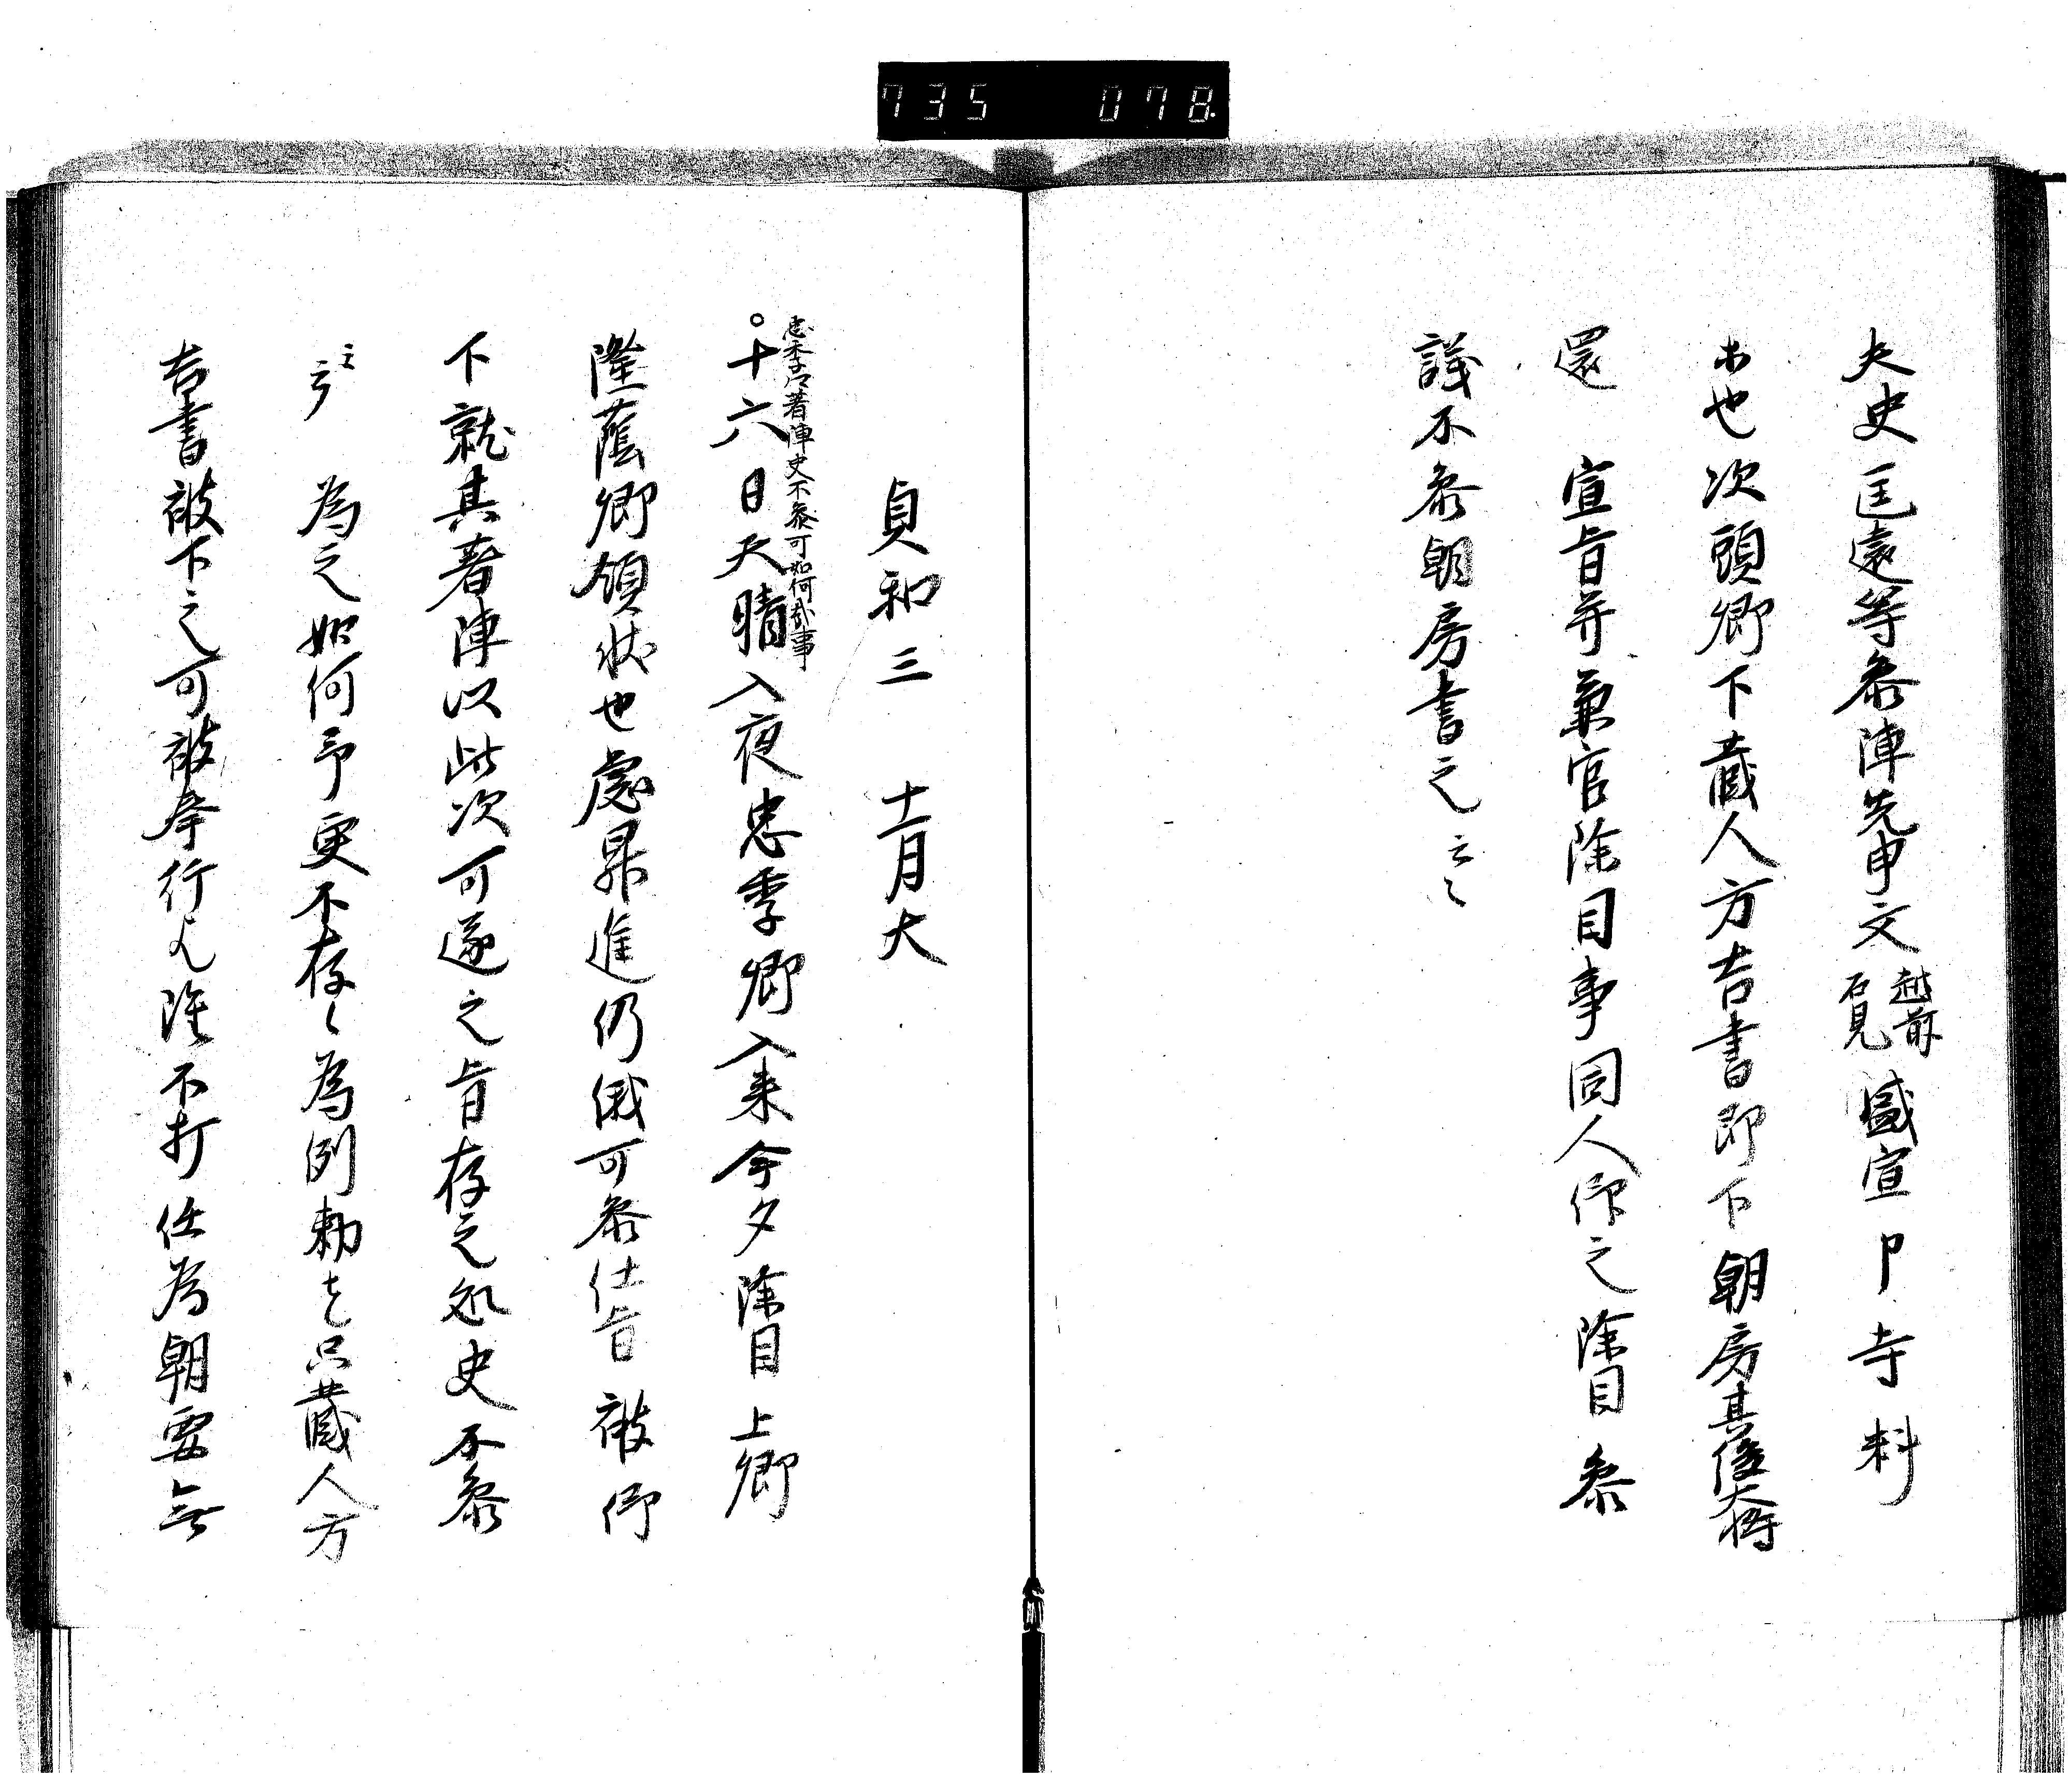 735 078
夫史匡遠等参陣先申文越前石見盛宣卩寺料
ホ也次頭卿下蔵人方吉書即下朝房其後大将
還 宣旨并兼官除目事同人仰之除目参
議不参朝房書之云々
貞和三 十一月大
忠季卿著陣史不参可如何哉事
○十六日天晴入夜忠季卿入来今夕除目上卿
隆蔭卿領状也處昇進仍俄可参仕旨被仰
下就其著陣以此次可遂之旨存之処史不参
云々 為之如何予更不存々為例勅も只蔵人方
吉書被下之可被奉行民 不打任為朝要無